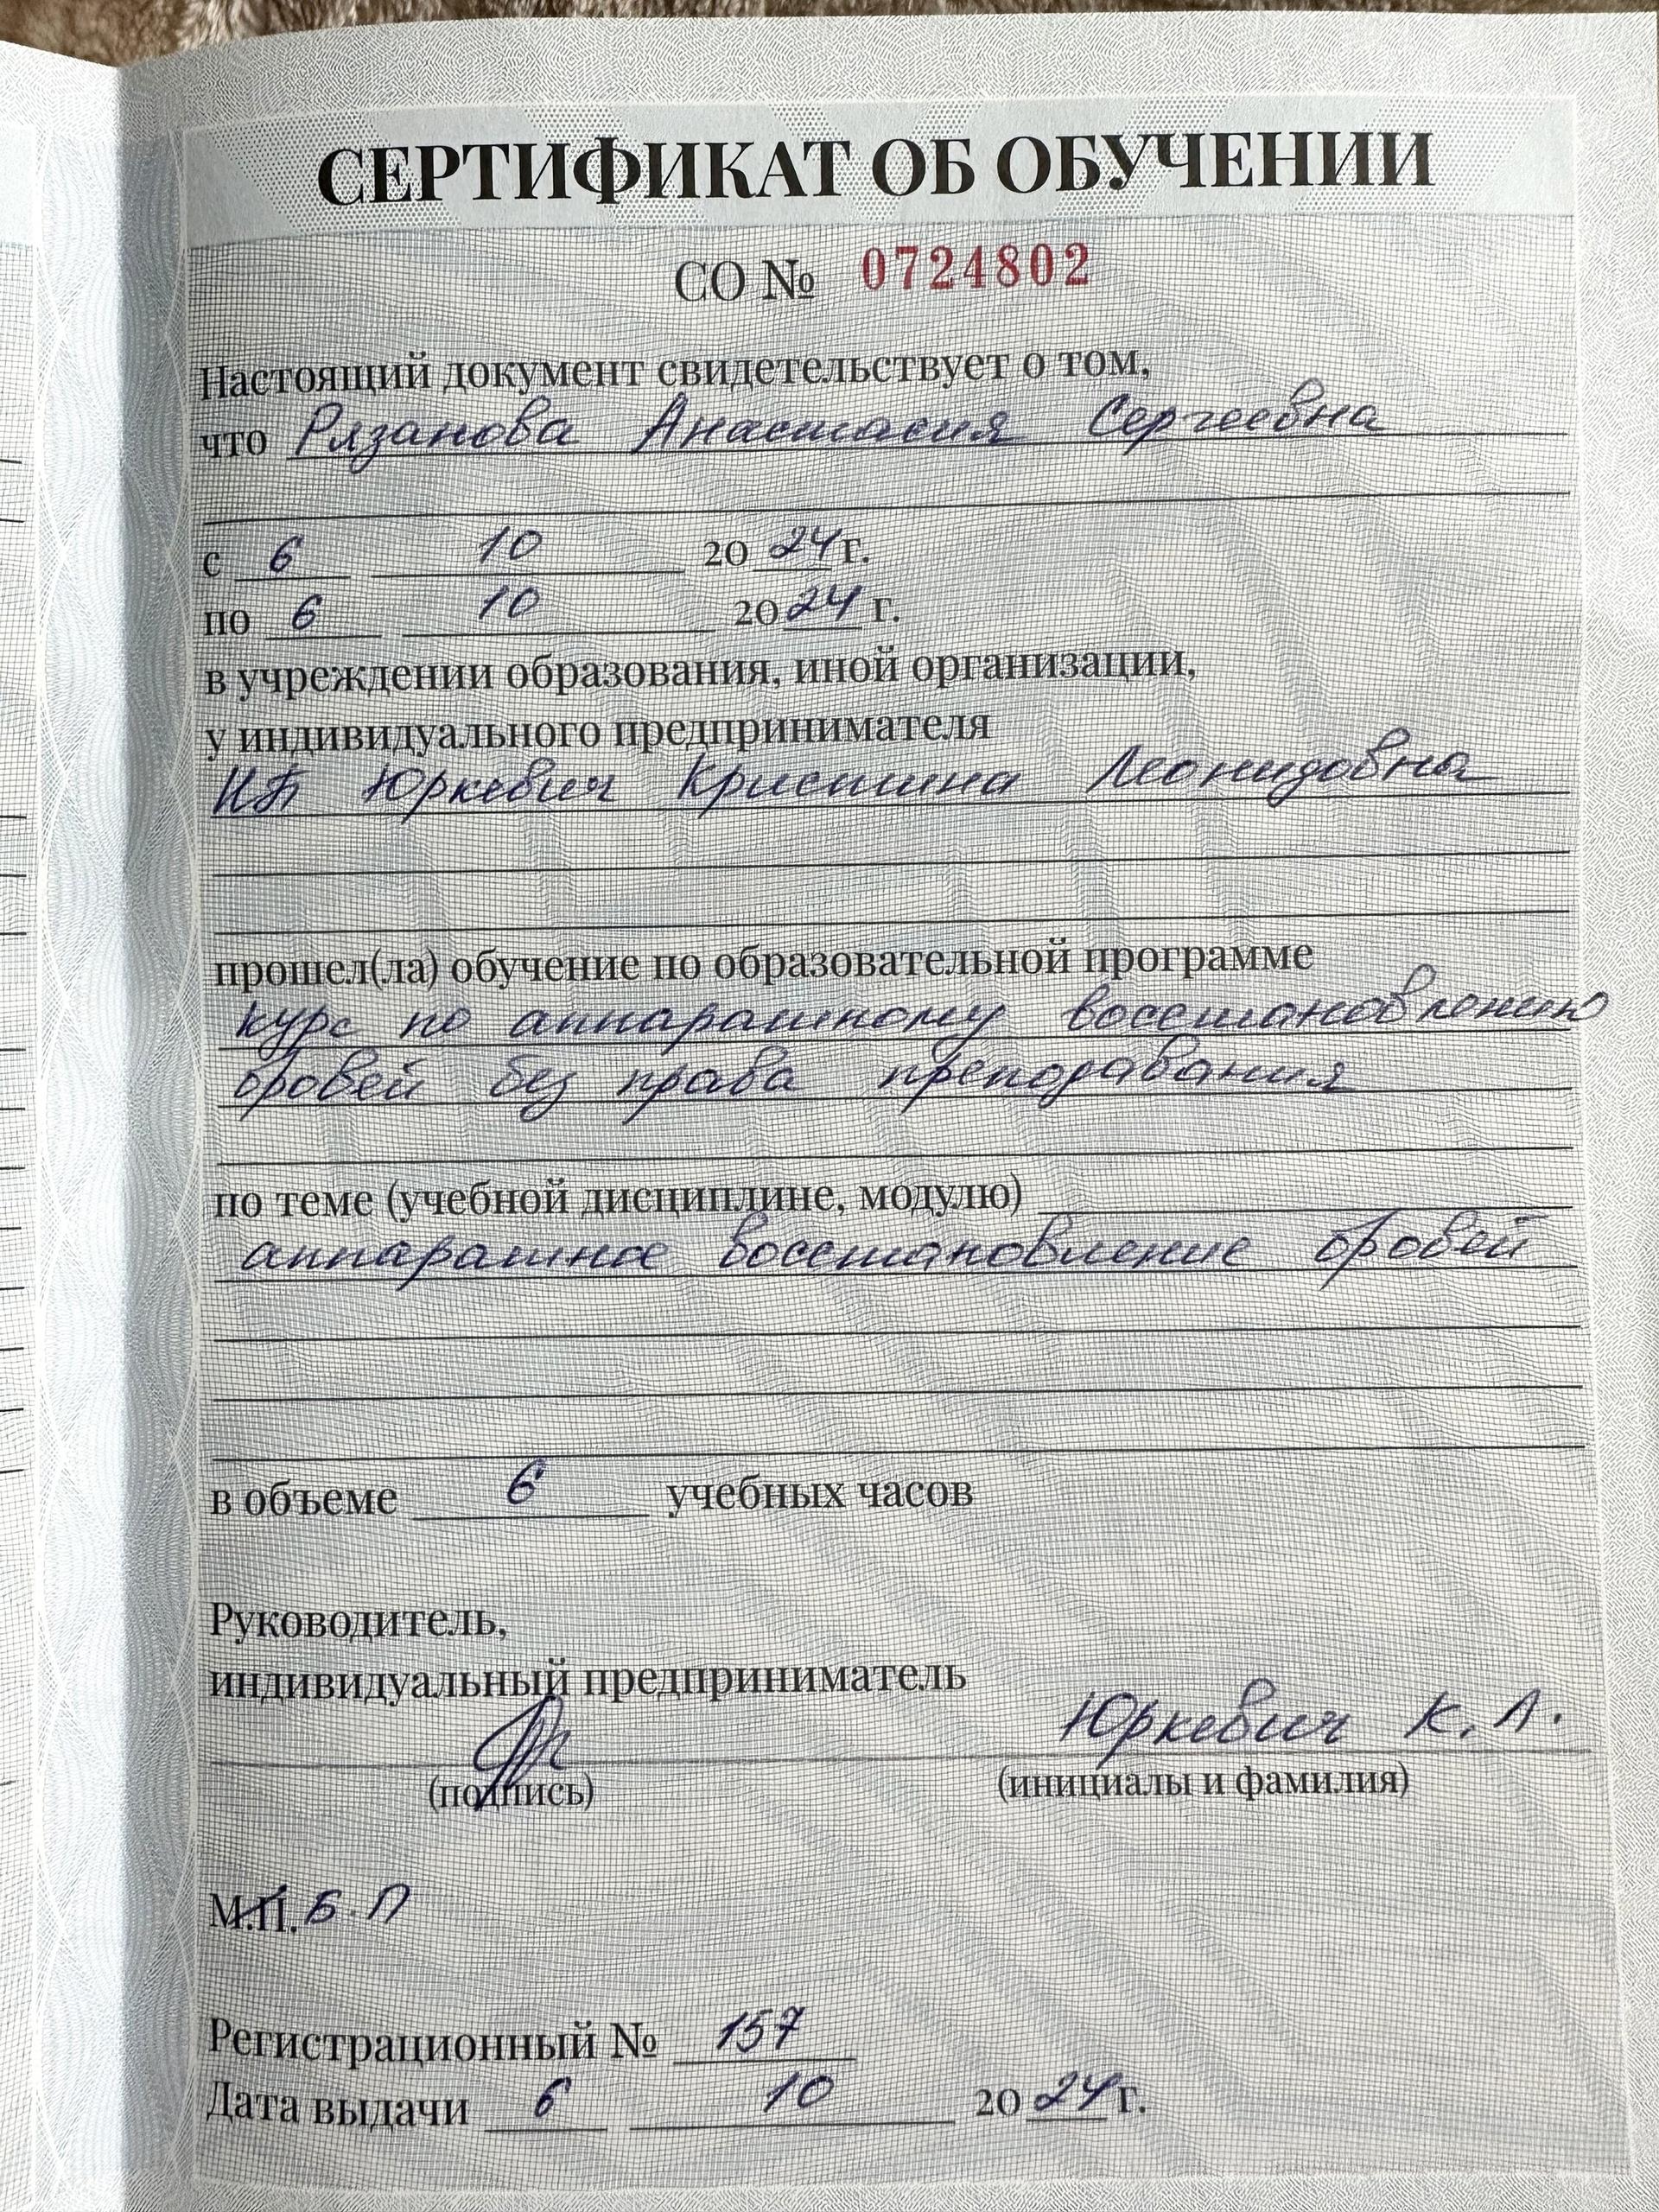 СЕРТИФИКАТ ОБ ОБУЧЕНИИ
СО № 0724802
Настоящий документ свидетельствует о том,
что Рязанова Анастасия Сергеевна
с 6 10 20 24 г.
по 6 10 20 24 г.
в учреждении образования, иной организации,
у индивидуального предпринимателя
ИП Юркевич Кристина Леонидовна
прошел(ла) обучение по образовательной программе
курс по аппаратному восстановлению
бровей без права преподавания
по теме (учебной дисциплине, модулю)
аппаратное восстановление бровей
в объеме 6 учебных часов
Руководитель,
индивидуальный предприниматель
Юркевич К. Л.
(подпись) (инициалы и фамилия)
М.П. Б.П
Регистрационный № 157
Дата выдачи 6 10 20 24 г.